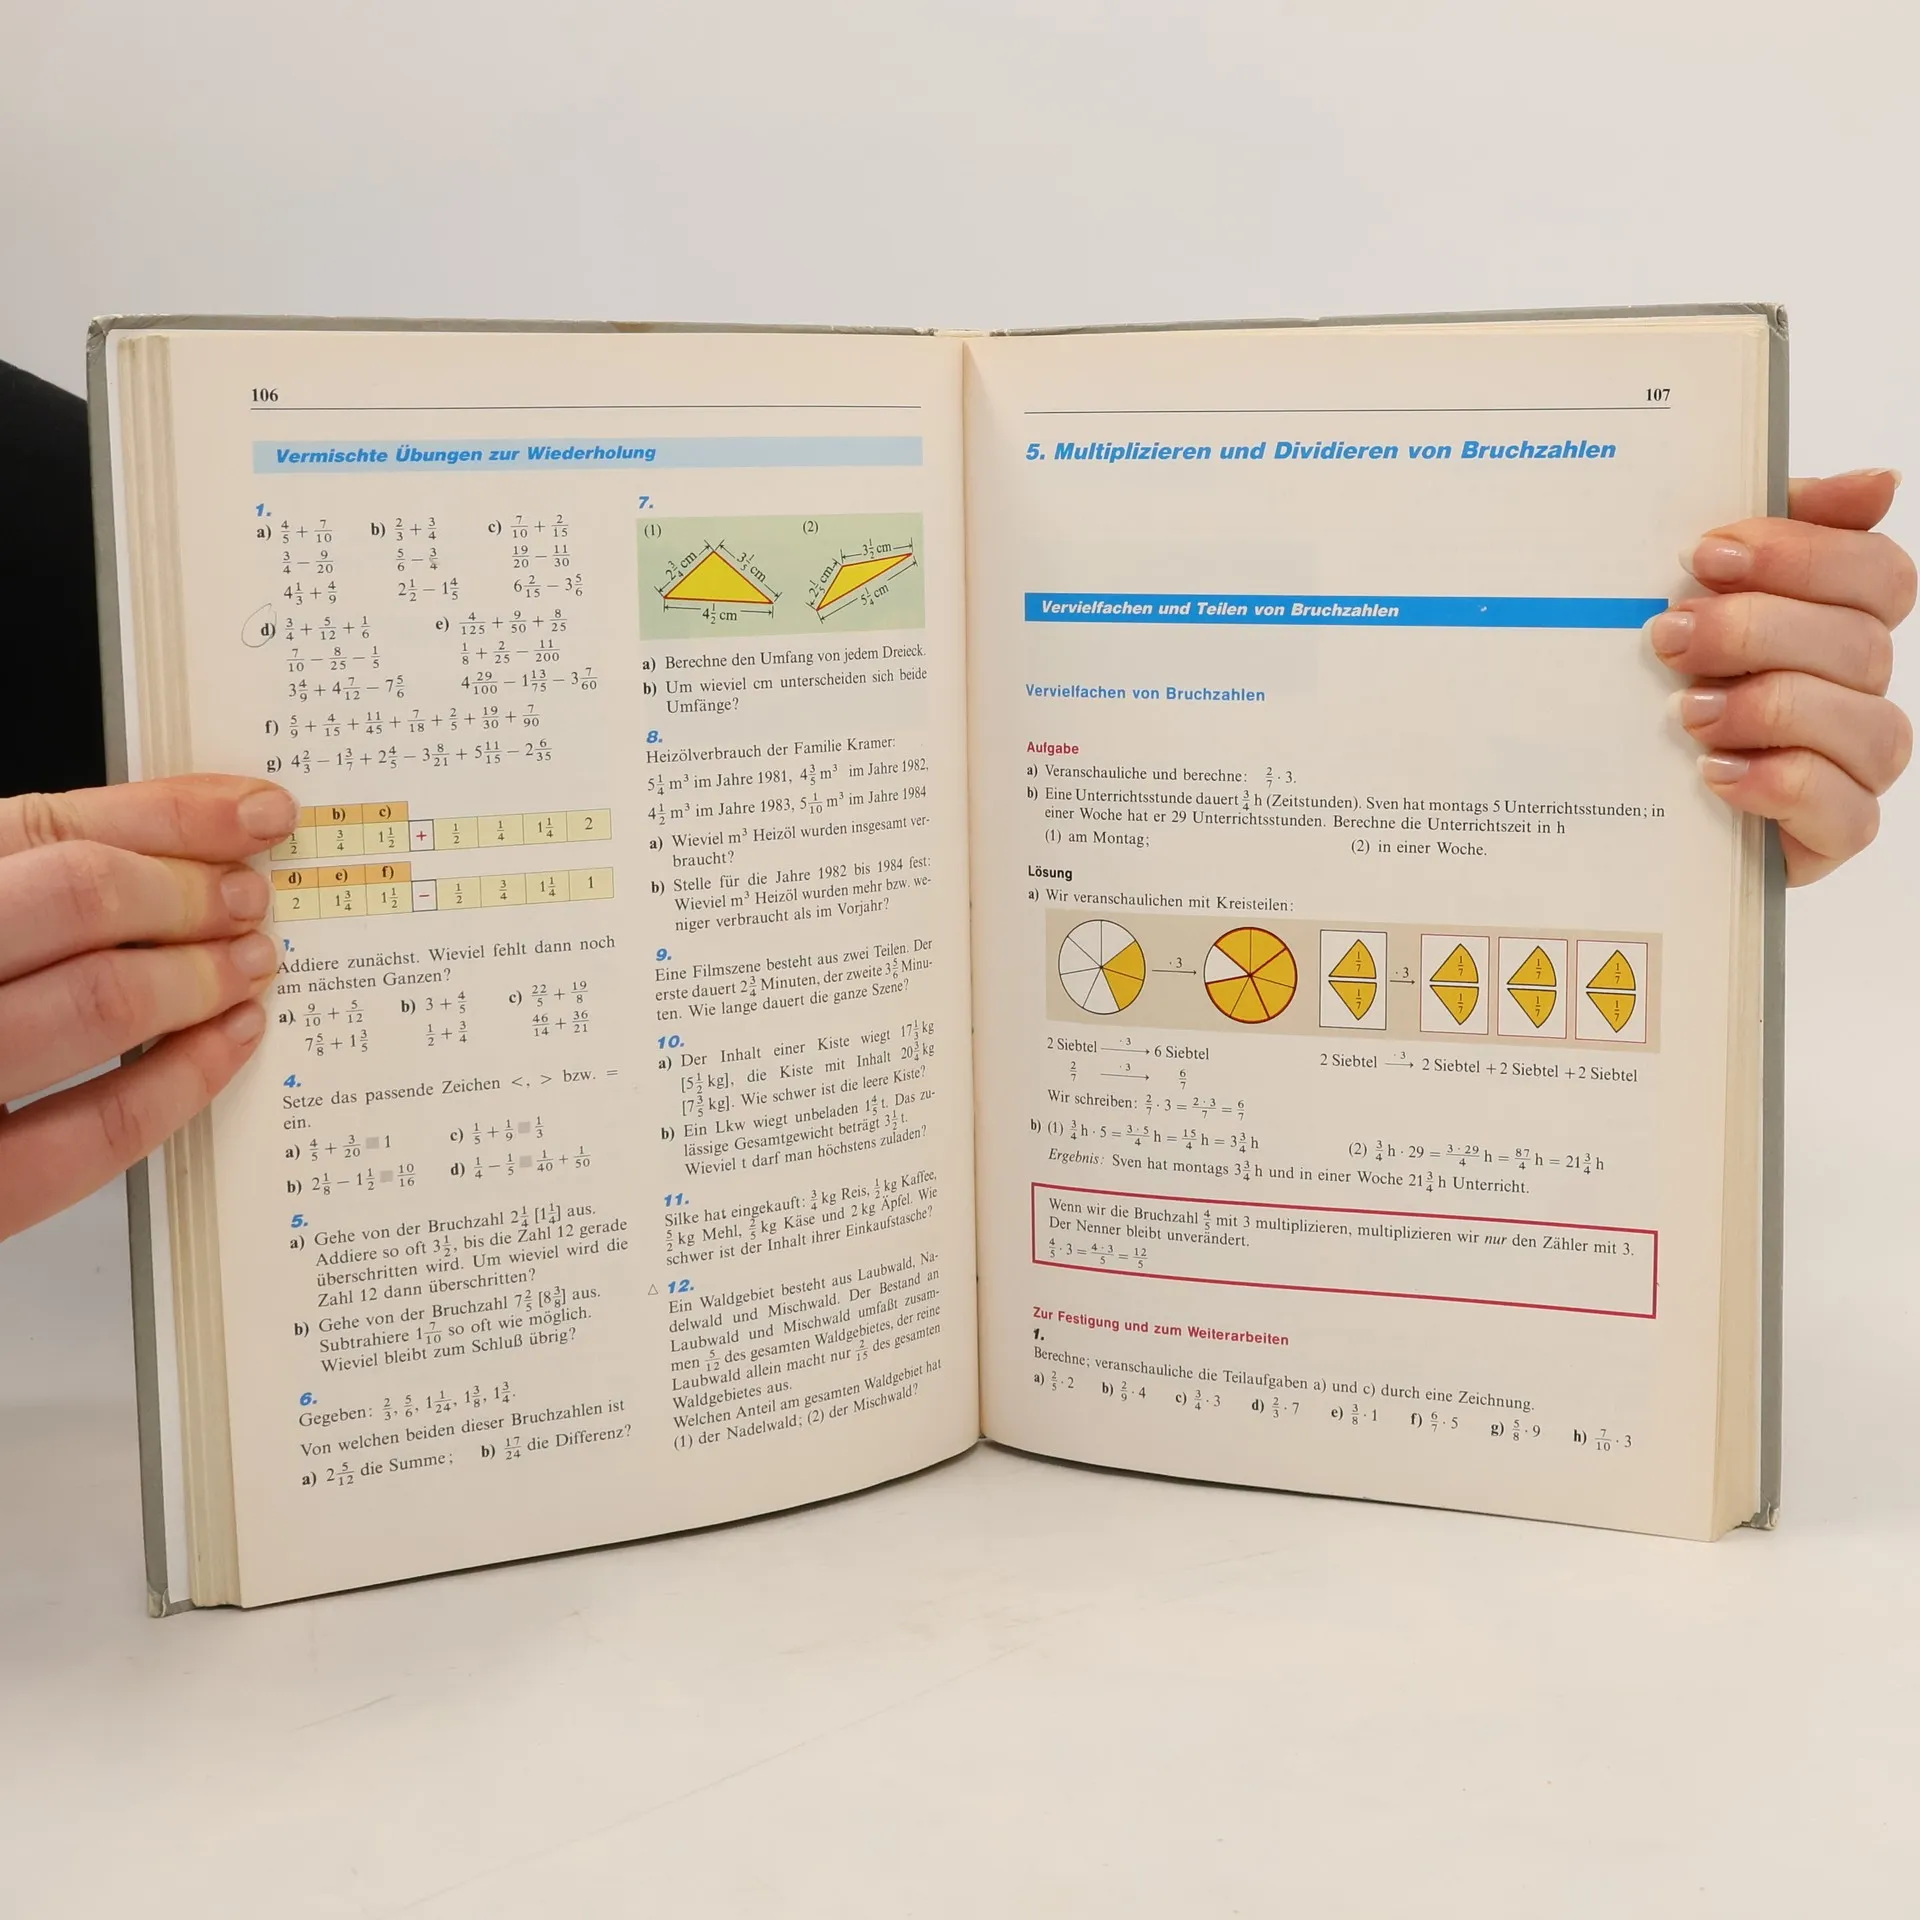 106
Vermischte Übungen zur Wiederholung
1.
a) 4/5 + 7/10 b) 2/3 + 3/4 c) 7/10 + 2/15
3/4 − 9/20 5/6 − 3/4 19/20 − 11/30
4 1/3 + 4/9 2 1/2 − 1 4/5 6 2/15 − 3 5/6
d) 3/4 + 5/12 + 1/6 e) 4/125 + 9/50 + 8/25
7/10 − 8/25 − 1/5 1/8 + 2/25 − 11/200
3 4/9 + 4 7/12 − 7 5/6 4 29/100 − 1 13/75 − 3 7/60
f) 5/9 + 4/15 + 11/45 + 7/18 + 2/5 + 19/30 + 7/90
g) 4 2/3 − 1 3/7 + 2 4/5 − 3 8/21 + 5 11/15 − 2 6/35
b) c)
1/2 3/4 1 1/2 + 1/2 1/4 1 1/4 2
d) e) f)
2 1 3/4 1 1/2 − 1/2 3/4 1 1/4 1
3.
Addiere zunächst. Wieviel fehlt dann noch
am nächsten Ganzen?
a) 9/10 + 5/12 b) 3 + 4/5 c) 22/5 + 19/8
7 5/8 + 1 3/5 1/2 + 3/4 46/14 + 36/21
4.
Setze das passende Zeichen <, > bzw. =
ein.
a) 4/5 + 3/20 ■ 1 c) 1/5 + 1/9 ■ 1/3
b) 2 1/8 − 1 1/2 ■ 10/16 d) 1/4 − 1/5 ■ 1/40 + 1/50
5.
a) Gehe von der Bruchzahl 2 1/4 [1 1/4] aus.
Addiere so oft 3 1/2, bis die Zahl 12 gerade
überschritten wird. Um wieviel wird die
Zahl 12 dann überschritten?
b) Gehe von der Bruchzahl 7 2/5 [8 3/8] aus.
Subtrahiere 1 7/10 so oft wie möglich.
Wieviel bleibt zum Schluß übrig?
6.
Gegeben: 2/3, 5/6, 1 1/24, 1 3/8, 1 3/4.
Von welchen beiden dieser Bruchzahlen ist
a) 2 5/12 die Summe; b) 17/24 die Differenz?
7.
(1) (2)
2 3/4 cm 3 1/5 cm 4 1/2 cm
2 1/5 cm 3 1/2 cm 5 1/4 cm
a) Berechne den Umfang von jedem Dreieck.
b) Um wieviel cm unterscheiden sich beide
Umfänge?
8.
Heizölverbrauch der Familie Kramer:
5 1/4 m³ im Jahre 1981, 4 3/5 m³ im Jahre 1982,
4 1/2 m³ im Jahre 1983, 5 1/10 m³ im Jahre 1984
a) Wieviel m³ Heizöl wurden insgesamt ver-
braucht?
b) Stelle für die Jahre 1982 bis 1984 fest:
Wieviel m³ Heizöl wurden mehr bzw. we-
niger verbraucht als im Vorjahr?
9.
Eine Filmszene besteht aus zwei Teilen. Der
erste dauert 2 3/4 Minuten, der zweite 3 5/6 Minu-
ten. Wie lange dauert die ganze Szene?
10.
a) Der Inhalt einer Kiste wiegt 17 1/3 kg
[5 1/2 kg], die Kiste mit Inhalt 20 3/4 kg
[7 3/5 kg]. Wie schwer ist die leere Kiste?
b) Ein Lkw wiegt unbeladen 1 4/5 t. Das zu-
lässige Gesamtgewicht beträgt 3 1/2 t.
Wieviel t darf man höchstens zuladen?
11.
Silke hat eingekauft: 3/4 kg Reis, 1/2 kg Kaffee,
5/2 kg Mehl, 2/5 kg Käse und 2 kg Äpfel. Wie
schwer ist der Inhalt ihrer Einkaufstasche?
△ 12.
Ein Waldgebiet besteht aus Laubwald, Na-
delwald und Mischwald. Der Bestand an
Laubwald und Mischwald umfaßt zusam-
men 5/12 des gesamten Waldgebietes, der reine
Laubwald allein macht nur 2/15 des gesamten
Waldgebietes aus.
Welchen Anteil am gesamten Waldgebiet hat
(1) der Nadelwald; (2) der Mischwald?
107
5. Multiplizieren und Dividieren von Bruchzahlen
Vervielfachen und Teilen von Bruchzahlen
Vervielfachen von Bruchzahlen
Aufgabe
a) Veranschauliche und berechne: 2/7 · 3.
b) Eine Unterrichtsstunde dauert 3/4 h (Zeitstunden). Sven hat montags 5 Unterrichtsstunden; in
einer Woche hat er 29 Unterrichtsstunden. Berechne die Unterrichtszeit in h
(1) am Montag; (2) in einer Woche.
Lösung
a) Wir veranschaulichen mit Kreisteilen:
· 3 1/7 1/7 · 3 1/7 1/7 1/7 1/7 1/7 1/7
2 Siebtel · 3 → 6 Siebtel 2 Siebtel · 3 → 2 Siebtel + 2 Siebtel + 2 Siebtel
2/7 · 3 → 6/7
Wir schreiben: 2/7 · 3 = 2 · 3/7 = 6/7
b) (1) 3/4 h · 5 = 3 · 5/4 h = 15/4 h = 3 3/4 h (2) 3/4 h · 29 = 3 · 29/4 h = 87/4 h = 21 3/4 h
Ergebnis: Sven hat montags 3 3/4 h und in einer Woche 21 3/4 h Unterricht.
Wenn wir die Bruchzahl 4/5 mit 3 multiplizieren, multiplizieren wir nur den Zähler mit 3.
Der Nenner bleibt unverändert.
4/5 · 3 = 4 · 3/5 = 12/5
Zur Festigung und zum Weiterarbeiten
1.
Berechne; veranschauliche die Teilaufgaben a) und c) durch eine Zeichnung.
a) 2/5 · 2 b) 2/9 · 4 c) 3/4 · 3 d) 2/3 · 7 e) 3/8 · 1 f) 6/7 · 5 g) 5/8 · 9 h) 7/10 · 3